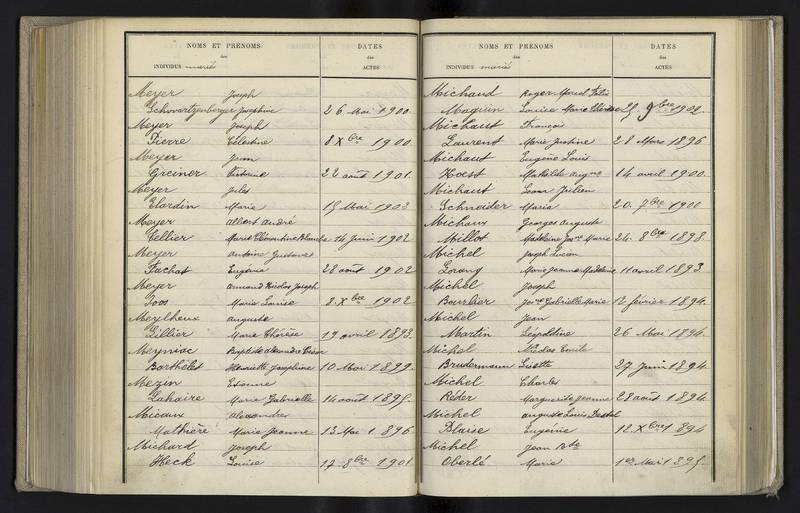 NOMS ET PRÉNOMS
des
INDIVIDUS mariés
DATES
des
ACTES
Meyer Joseph
Schwartzenberger Joséphine 26 Mai 1900.
Meyer Joseph
Pierre Célestine 8 Xbre 1900.
Meyer Jean
Greiner Victorine 22 août 1901.
Meyer Jules
Elardin Marie 15 Mai 1902
Meyer Albert André
Cellier Marie Clémentine Blanche 14 juin 1902
Meyer Antoine Gustave
Fachat Eugénie 28 août 1902
Meyer Armand Nicolas Joseph
Joos Marie Louise 8 Xbre 1902
Meylheux Auguste
Gillier Marie Thérèse 19 avril 1893.
Meyniac Baptiste Alexandre César
Barthélet Henriette Joséphine 10 Mai 1899.
Mezin Etienne
Lahaire Marie Gabrielle 14 août 1895.
Micaux Alexandre
Mathière Marie Jeanne 13 Mai 1896
Michard Joseph
Heck Louise 12 8bre 1901
NOMS ET PRÉNOMS
des
INDIVIDUS mariés
DATES
des
ACTES
Michaud Roger Marcel Félix
Maquin Louise Marie Thérèse 25 9bre 1902.
Michaut François
Laurent Marie Justine 28 Mars 1896
Michaut Eugène Louis
Hœst Mathilde Augne 14 avril 1900.
Michaut Léon Julien
Schneider Maria 20 7bre 1900
Michaux Georges Auguste
Millot Madeleine Jne Marie 24 8bre 1898.
Michel Joseph Lucien
Lorang Marie Jeanne Madeleine 11 avril 1893
Michel Joseph
Bourlier Jne Gabrielle Marie 12 février 1894.
Michel Jean
Martin Léopoldine 26 Mai 1894.
Michel Nicolas Emile
Brudermann Lisette 27 juin 1894.
Michel Charles
Réder Marguerite Jeanne 28 août 1894
Michel Auguste Louis
Blaise Eugénie 12 Xbre 1894
Michel Jean Bte
Oberlé Marie 1er Mai 1895.